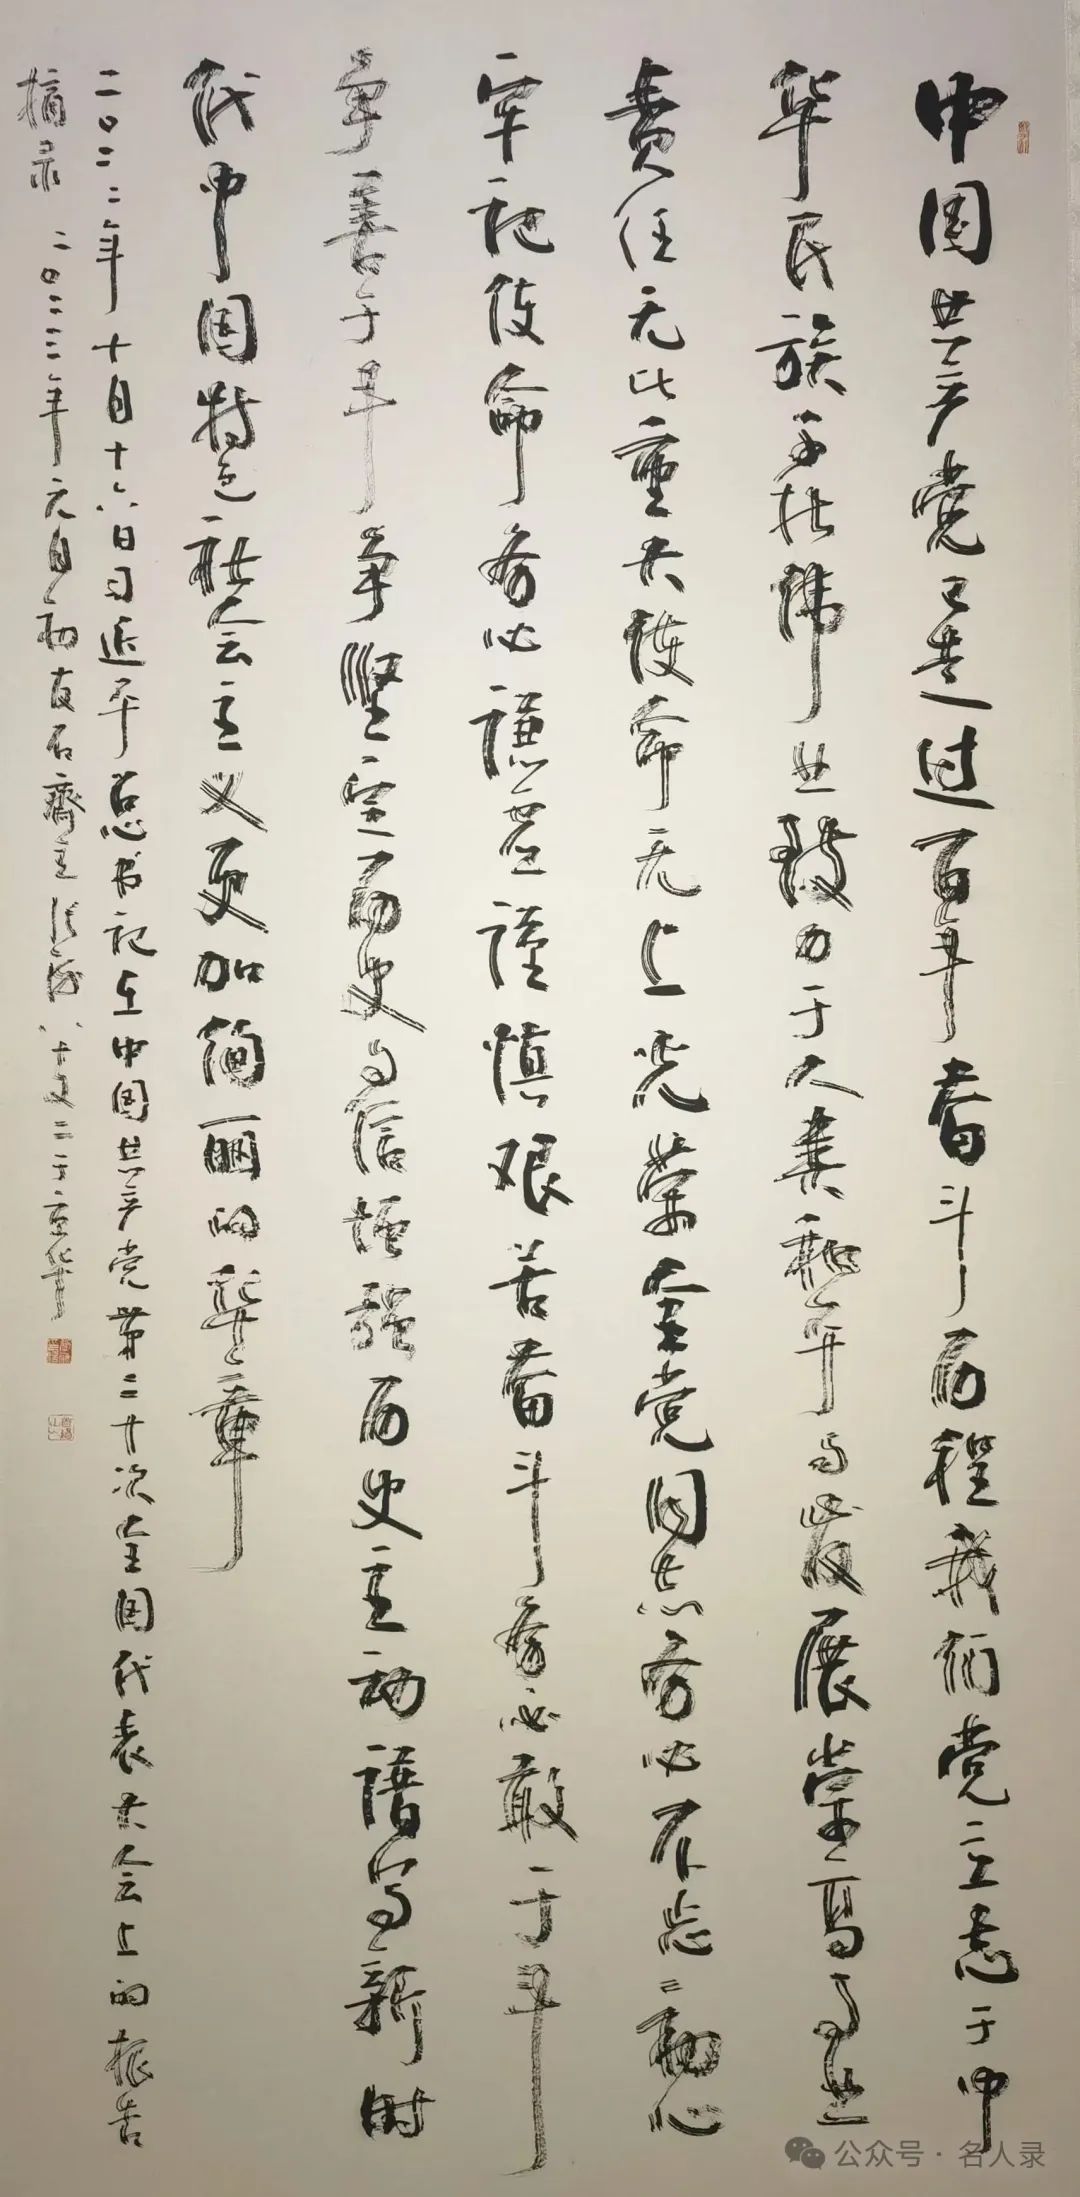 中国共产党已走过百年奋斗历程我们党立志于中
华民族千秋伟业致力于人类和平与发展崇高事业
责任无比重大使命无上光荣全党同志务必不忘初心
牢记使命务必谦虚谨慎艰苦奋斗务必敢于斗
争善于斗争坚定历史自信增强历史主动谱写新时
代中国特色社会主义更加绚丽的华章
二〇二二年十月十六日习近平总书记在中国共产党第二十次全国代表大会上的报告
摘录 二〇二三年元月初友石齋主八十又二于京华
公众号·名人录